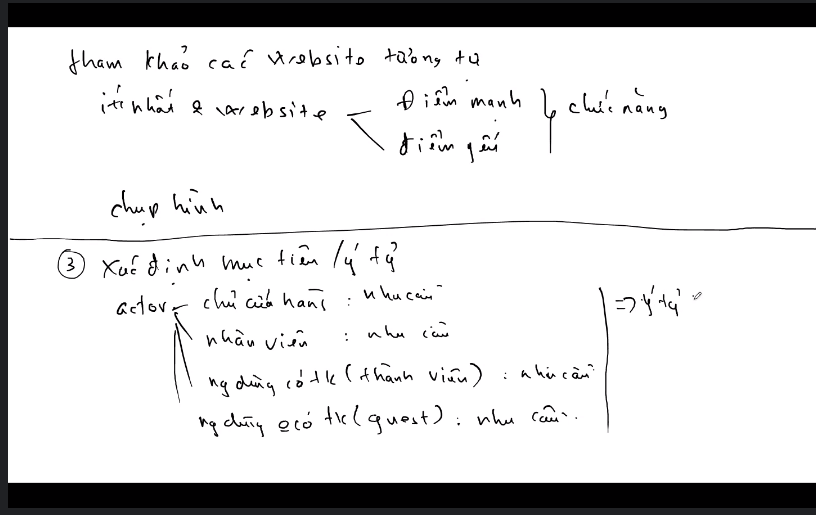 tham khảo các website tương tự
ít nhất 2 website
Điểm mạnh
điểm yếu
chức năng
chụp hình
③ Xác định mục tiêu / ý tg
actor
chủ cửa hàng : nhu cầu
nhân viên : nhu cầu
ng dùng có tk (thành viên) : nhu cầu
ng dùng có tk (guest) : nhu cầu
=> ý tg